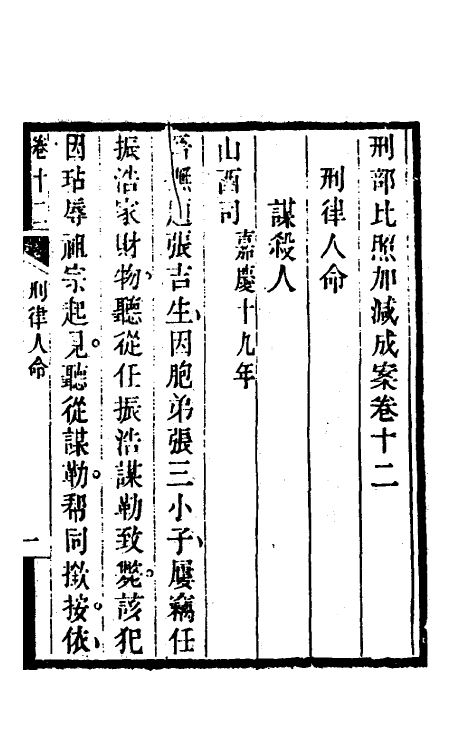 刑部比照加減成案卷十二
刑律人命
謀殺人
山西司
嘉慶十九年
晉撫題張吉生、因胞弟張三小子、屢竊任
振浩家財物。聽從任振浩謀勒致斃。該犯
因玷辱祖宗起見。聽從謀勒。幫同撳按。依、
卷十二
刑律人命
一